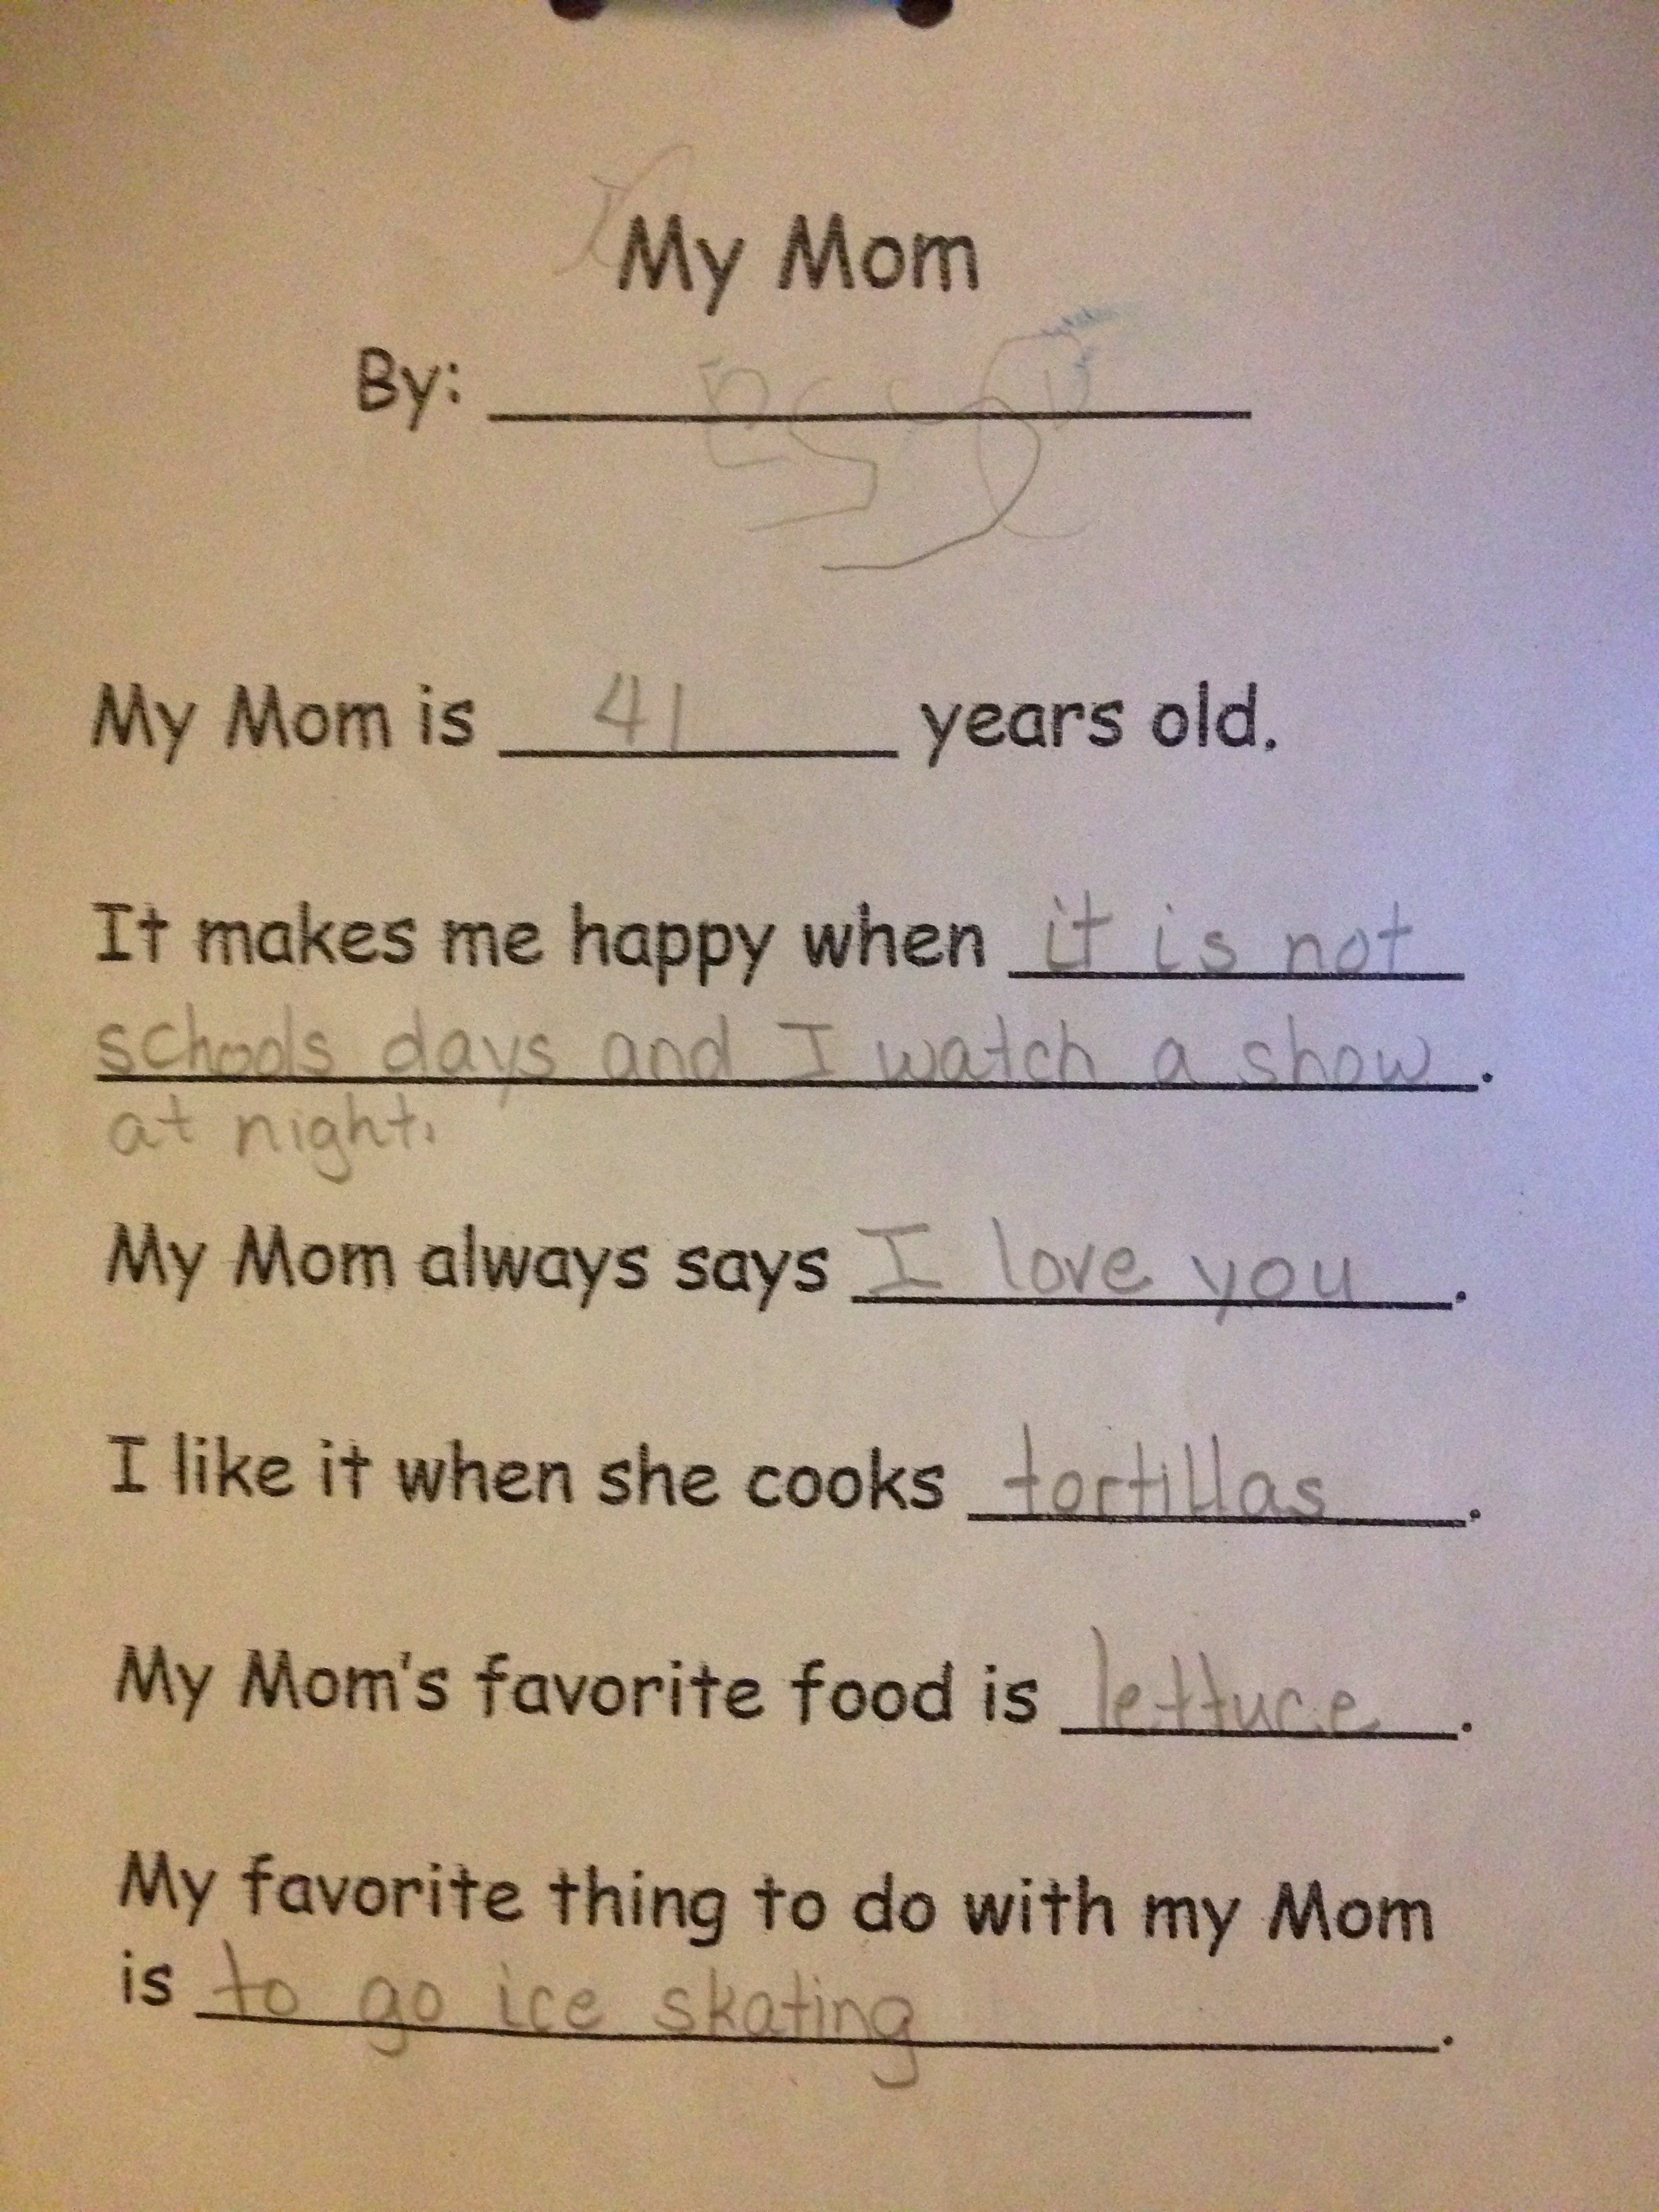 My Mom
By:
My Mom is 41 years old.
It makes me happy when it is not
schools days and I watch a show.
at night.
My Mom always says I love you.
I like it when she cooks tortillas.
My Mom's favorite food is lettuce.
My favorite thing to do with my Mom
is to go ice skating.